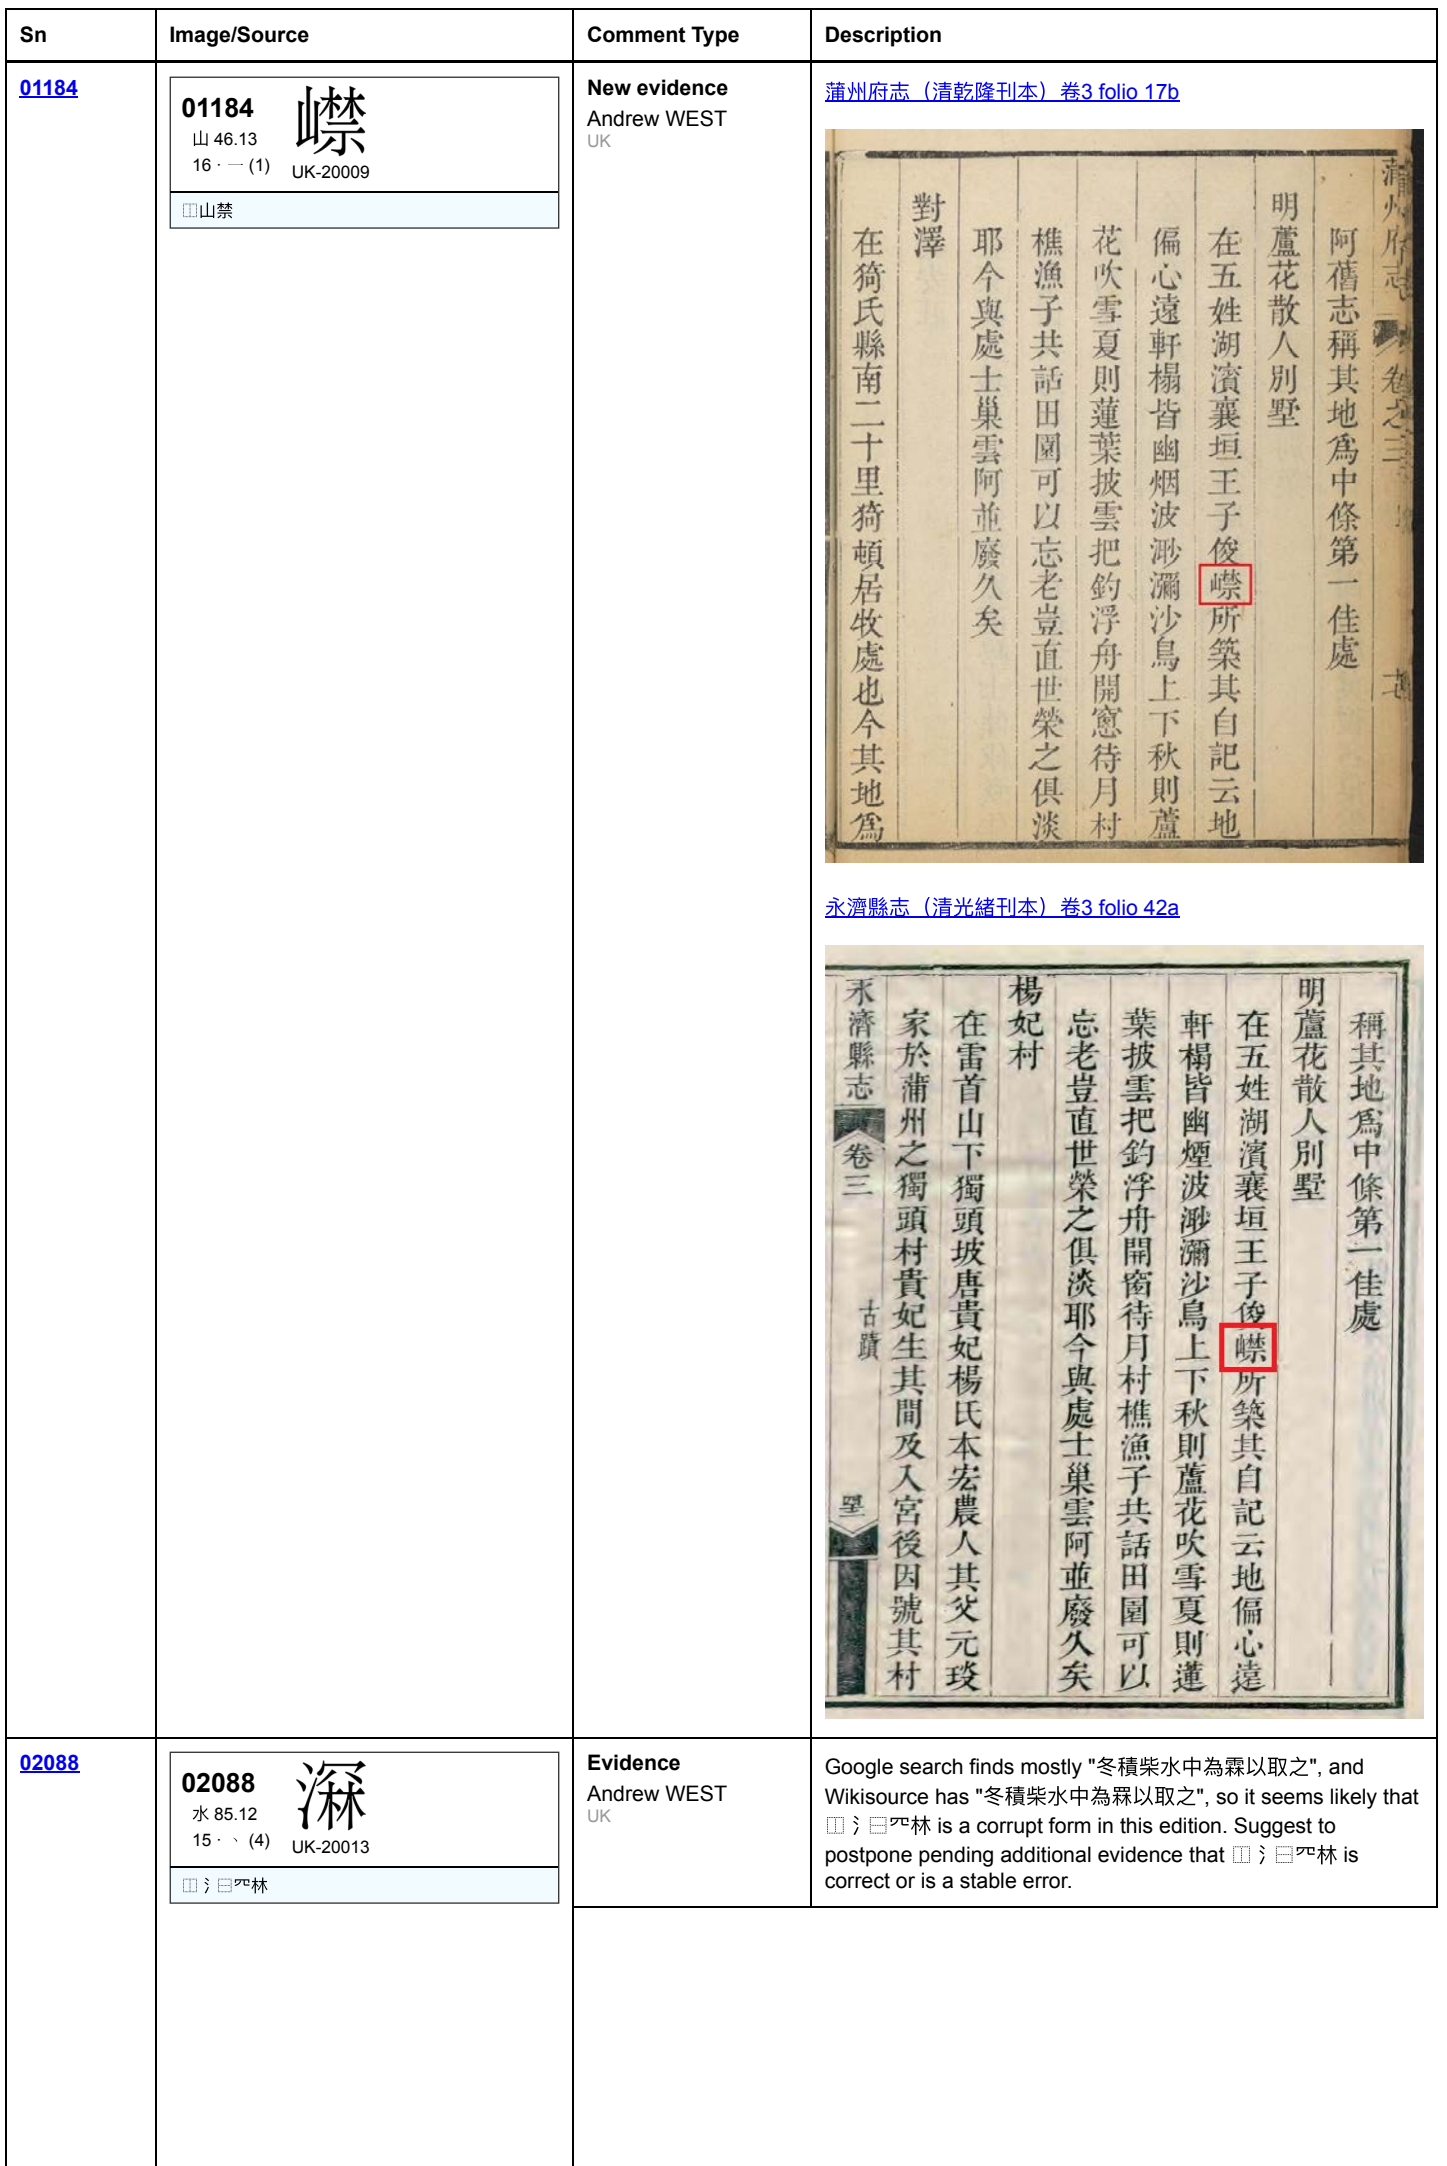 Sn Image/Source Comment Type Description
01184
01184
山 46.13
16 · 一 (1)
UK-20009
⿰山禁
New evidence
Andrew WEST
UK
蒲州府志（清乾隆刊本）卷3 folio 17b
蒲州府志 卷之三
阿舊志稱其地爲中條第一佳處
明蘆花散人別墅
在五姓湖濱襄垣王子俊㯲所築其自記云地
偏心遠軒榻皆幽烟波渺瀰沙鳥上下秋則蘆
花吹雪夏則蓮葉披雲把釣浮舟開窻待月村
樵漁子共話田園可以忘老豈直世榮之俱淡
耶今與處士巢雲阿並廢久矣
對澤
在猗氏縣南二十里猗頓居牧處也今其地爲
永濟縣志（清光緒刊本）卷3 folio 42a
稱其地爲中條第一佳處
明蘆花散人別墅
在五姓湖濱襄垣王子俊所築其自記云地偏心遠
軒榻皆幽煙波渺瀰沙鳥上下秋則蘆花吹雪夏則蓮
葉披雲把釣浮舟開窗待月村樵漁子共話田園可以
忘老豈直世榮之俱淡耶今與處士巢雲阿並廢久矣
楊妃村
在雷首山下獨頭坡唐貴妃楊氏本宏農人其父元琰
家於蒲州之獨頭村貴妃生其間及入宮後因號其村
永濟縣志 卷三 古蹟
02088
02088
水 85.12
15 · 丶 (4)
UK-20013
⿰氵⿱罒林
Evidence
Andrew WEST
UK
Google search finds mostly "冬積柴水中為霖以取之", and
Wikisource has "冬積柴水中為罧以取之", so it seems likely that
⿰氵⿱罒林 is a corrupt form in this edition. Suggest to
postpone pending additional evidence that ⿰氵⿱罒林 is
correct or is a stable error.